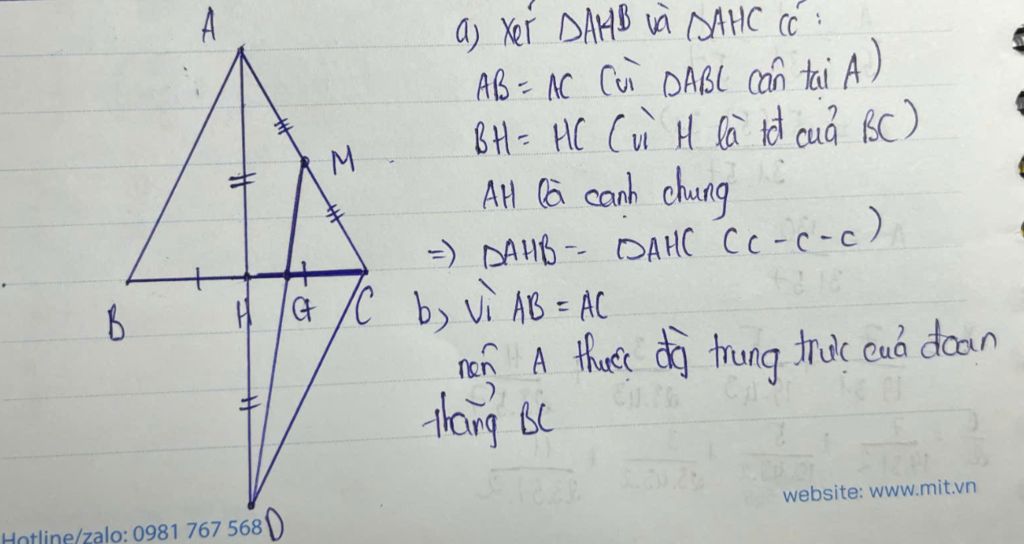 A
M
B
H
G
C
D
a) Xét ΔAHB và ΔAHC có:
AB = AC (vì ΔABC cân tại A)
BH = HC (vì H là tđ cuả BC)
AH là cạnh chung
=> ΔAHB = ΔAHC (c-c-c)
b, Vì AB = AC
nên A thuộc đg trung trực cuả đoạn
thẳng BC
website: www.mit.vn
Hotline/zalo: 0981 767 568